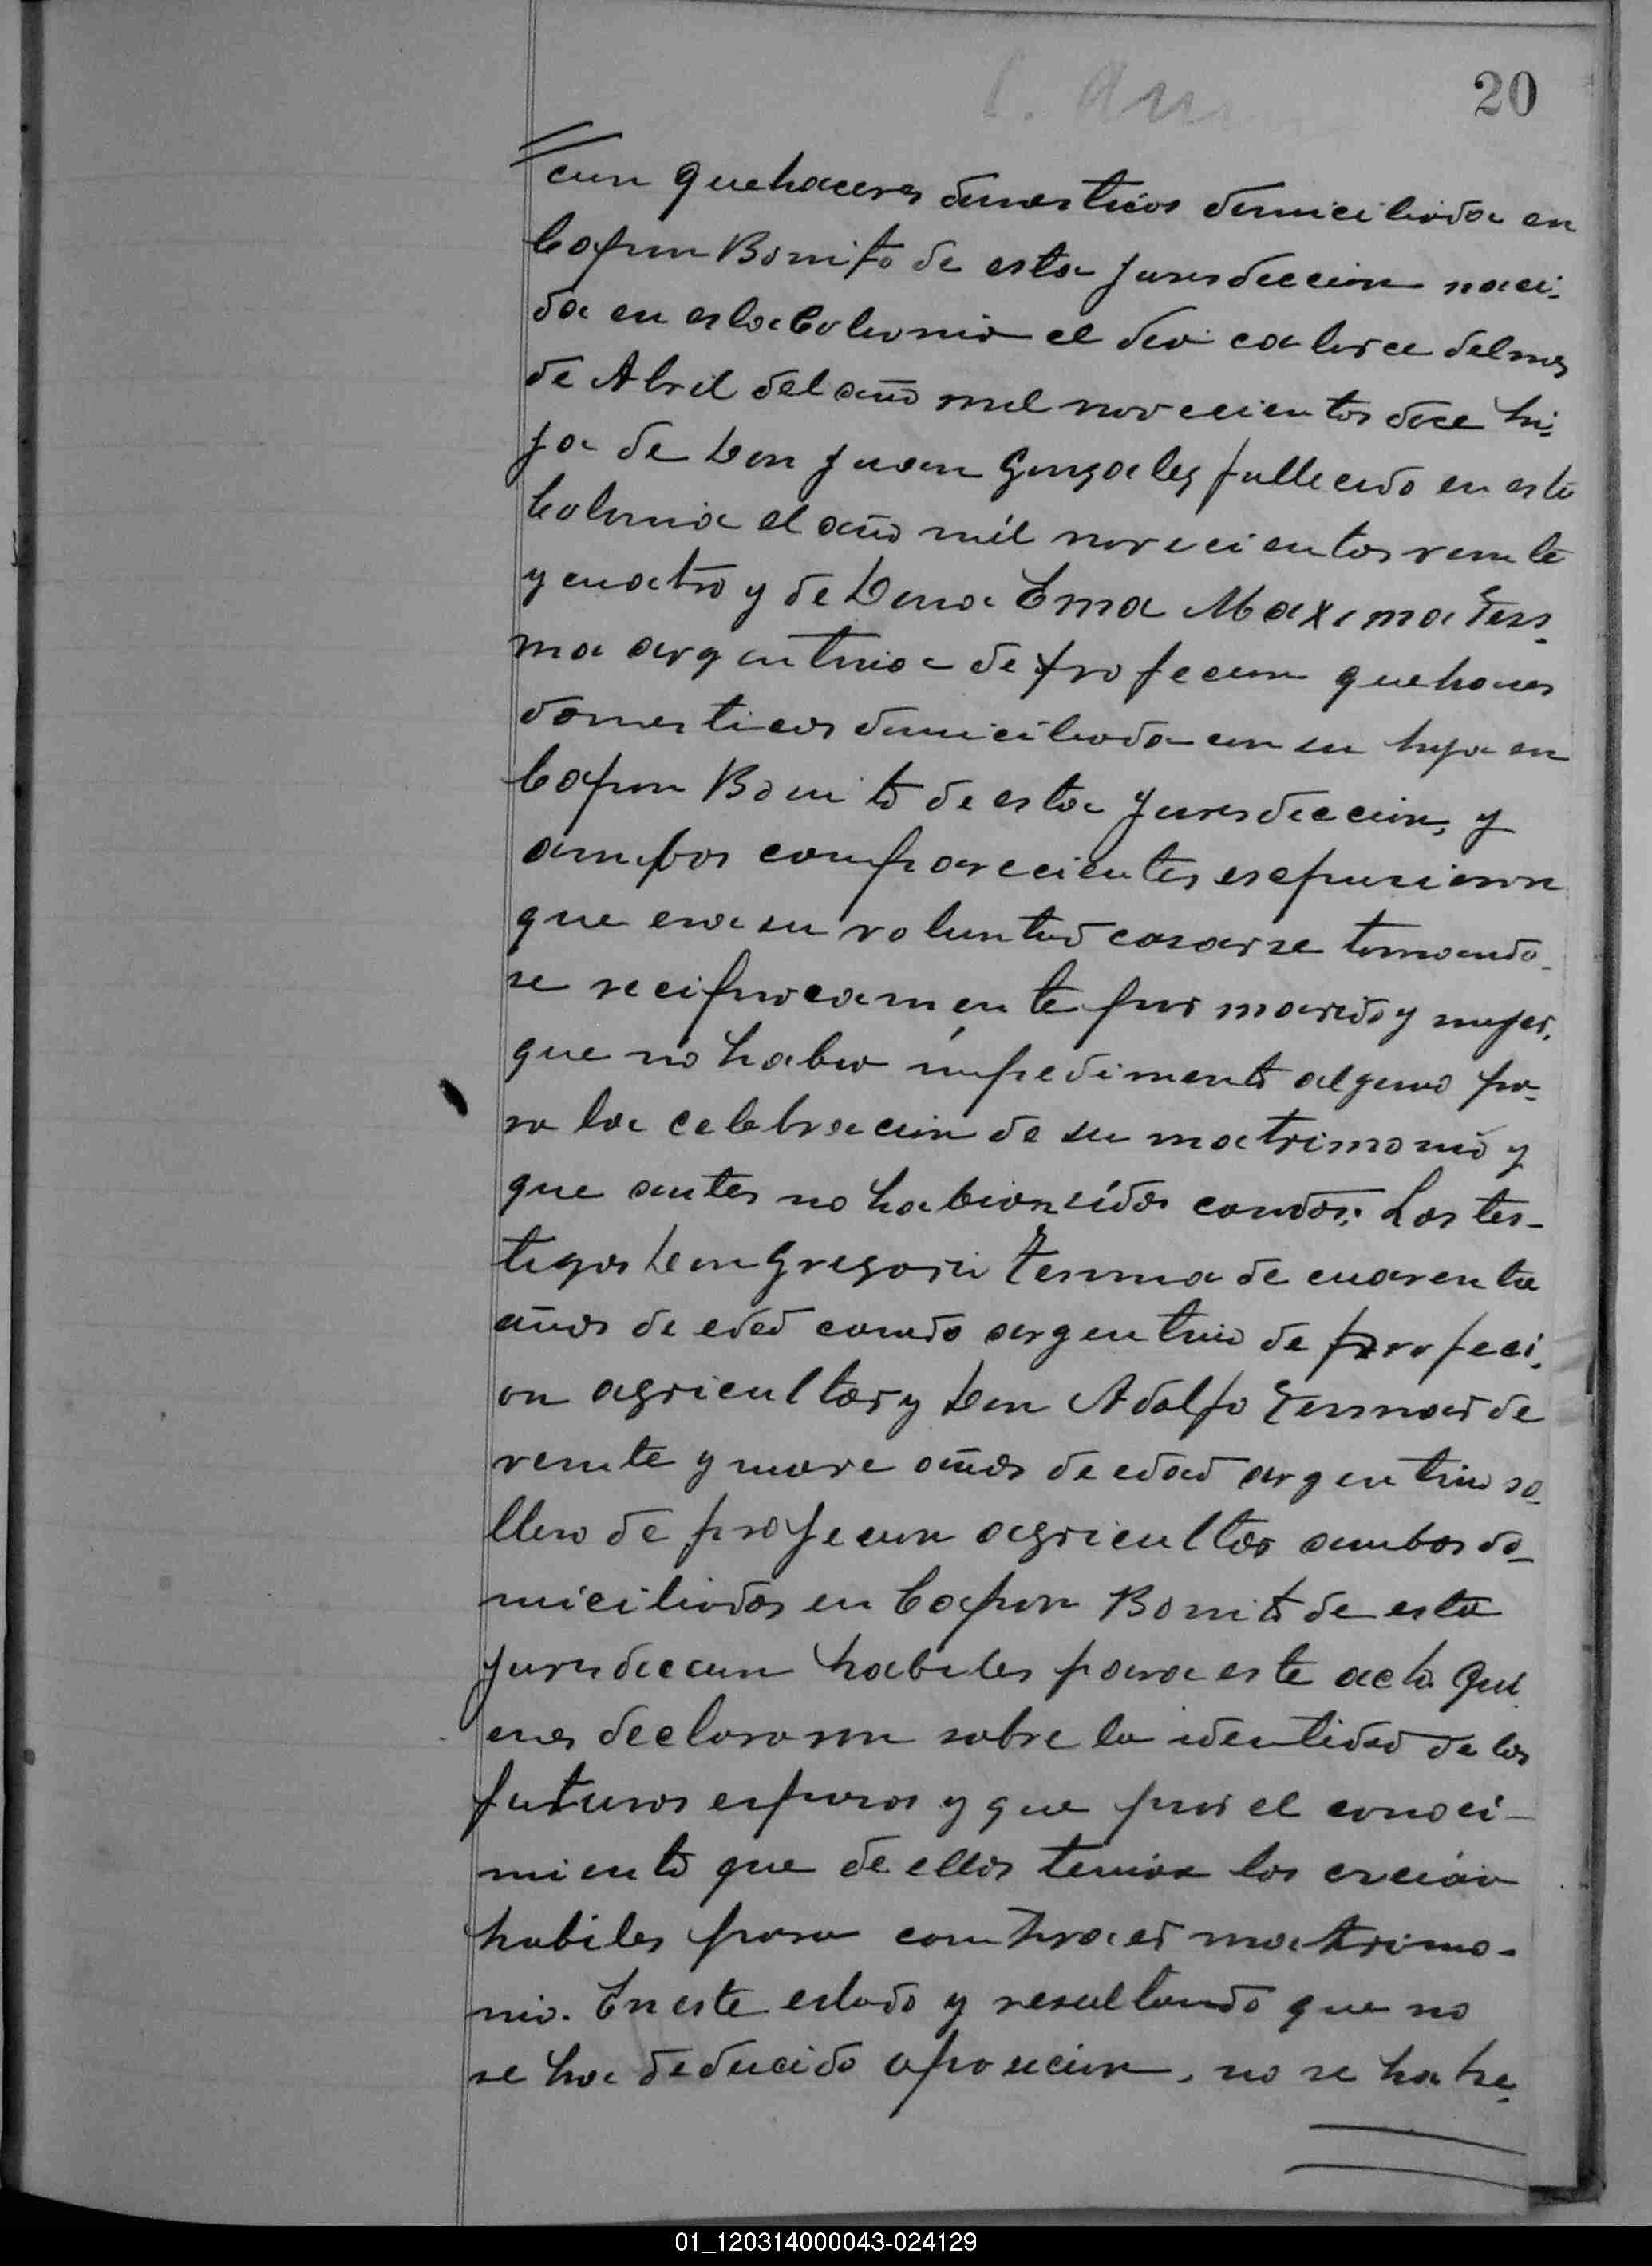 20
cion quehaceres domesticos domiciliada en
Capon Bonito de esta jurisdiccion naci-
da en esta Colonia el dia catorce del mes
de Abril del año mil novecientos doce hi-
ja de Don Juan Gonzalez fallecido en esta
Colonia el año mil novecientos veinte
y cuatro y de Dona Ema Maxima
ma argentina de profecion quehaceres
domesticos domiciliada con su hija en
Capon Bonito de esta jurisdiccion, y
ambos comparecientes espusieron
que era su voluntad casarse tomando-
se reciprocamente por marido y mujer,
que no habia impedimento alguno pa-
ra la celebracion de su matrimonio y
que antes no habian sidos casados. Los tes-
tigos Don Gregorio de cuarenta
años de edad casado argentino de profeci-
on agricultor y Don Adolfo de
veinte y nueve años de edad argentino so-
ltero de profecion agricultor ambos do-
miciliados en Capon Bonito de esta
jurisdiccion habiles para este acto Qui
enes declararon sobre la identidad de los
futuros esposos y que por el conoci-
miento que de ellos tenian los creian
habiles para contraer matrimo-
nio. En este estado y resultando que no
se ha deducido oposicion, no se ha he-
01_120314000043-024129